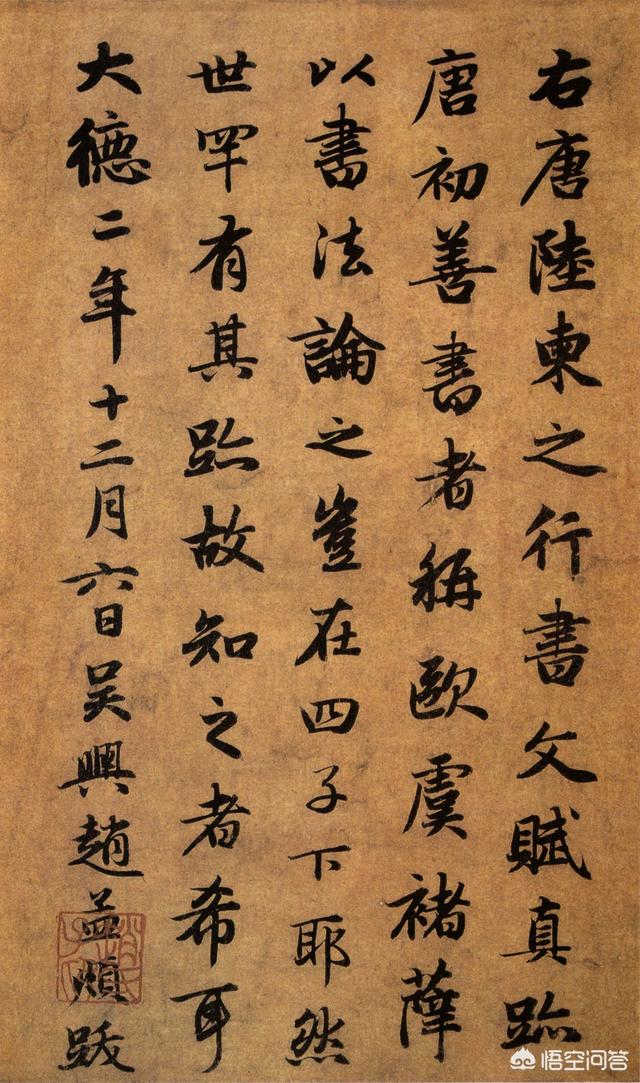 右唐陸柬之行書文賦真跡
唐初善書者稱歐虞褚薛
以書法論之豈在四子下耶然
世罕有其跡故知之者希耳
大德二年十二月六日吴興趙孟頫跋
悟空问答